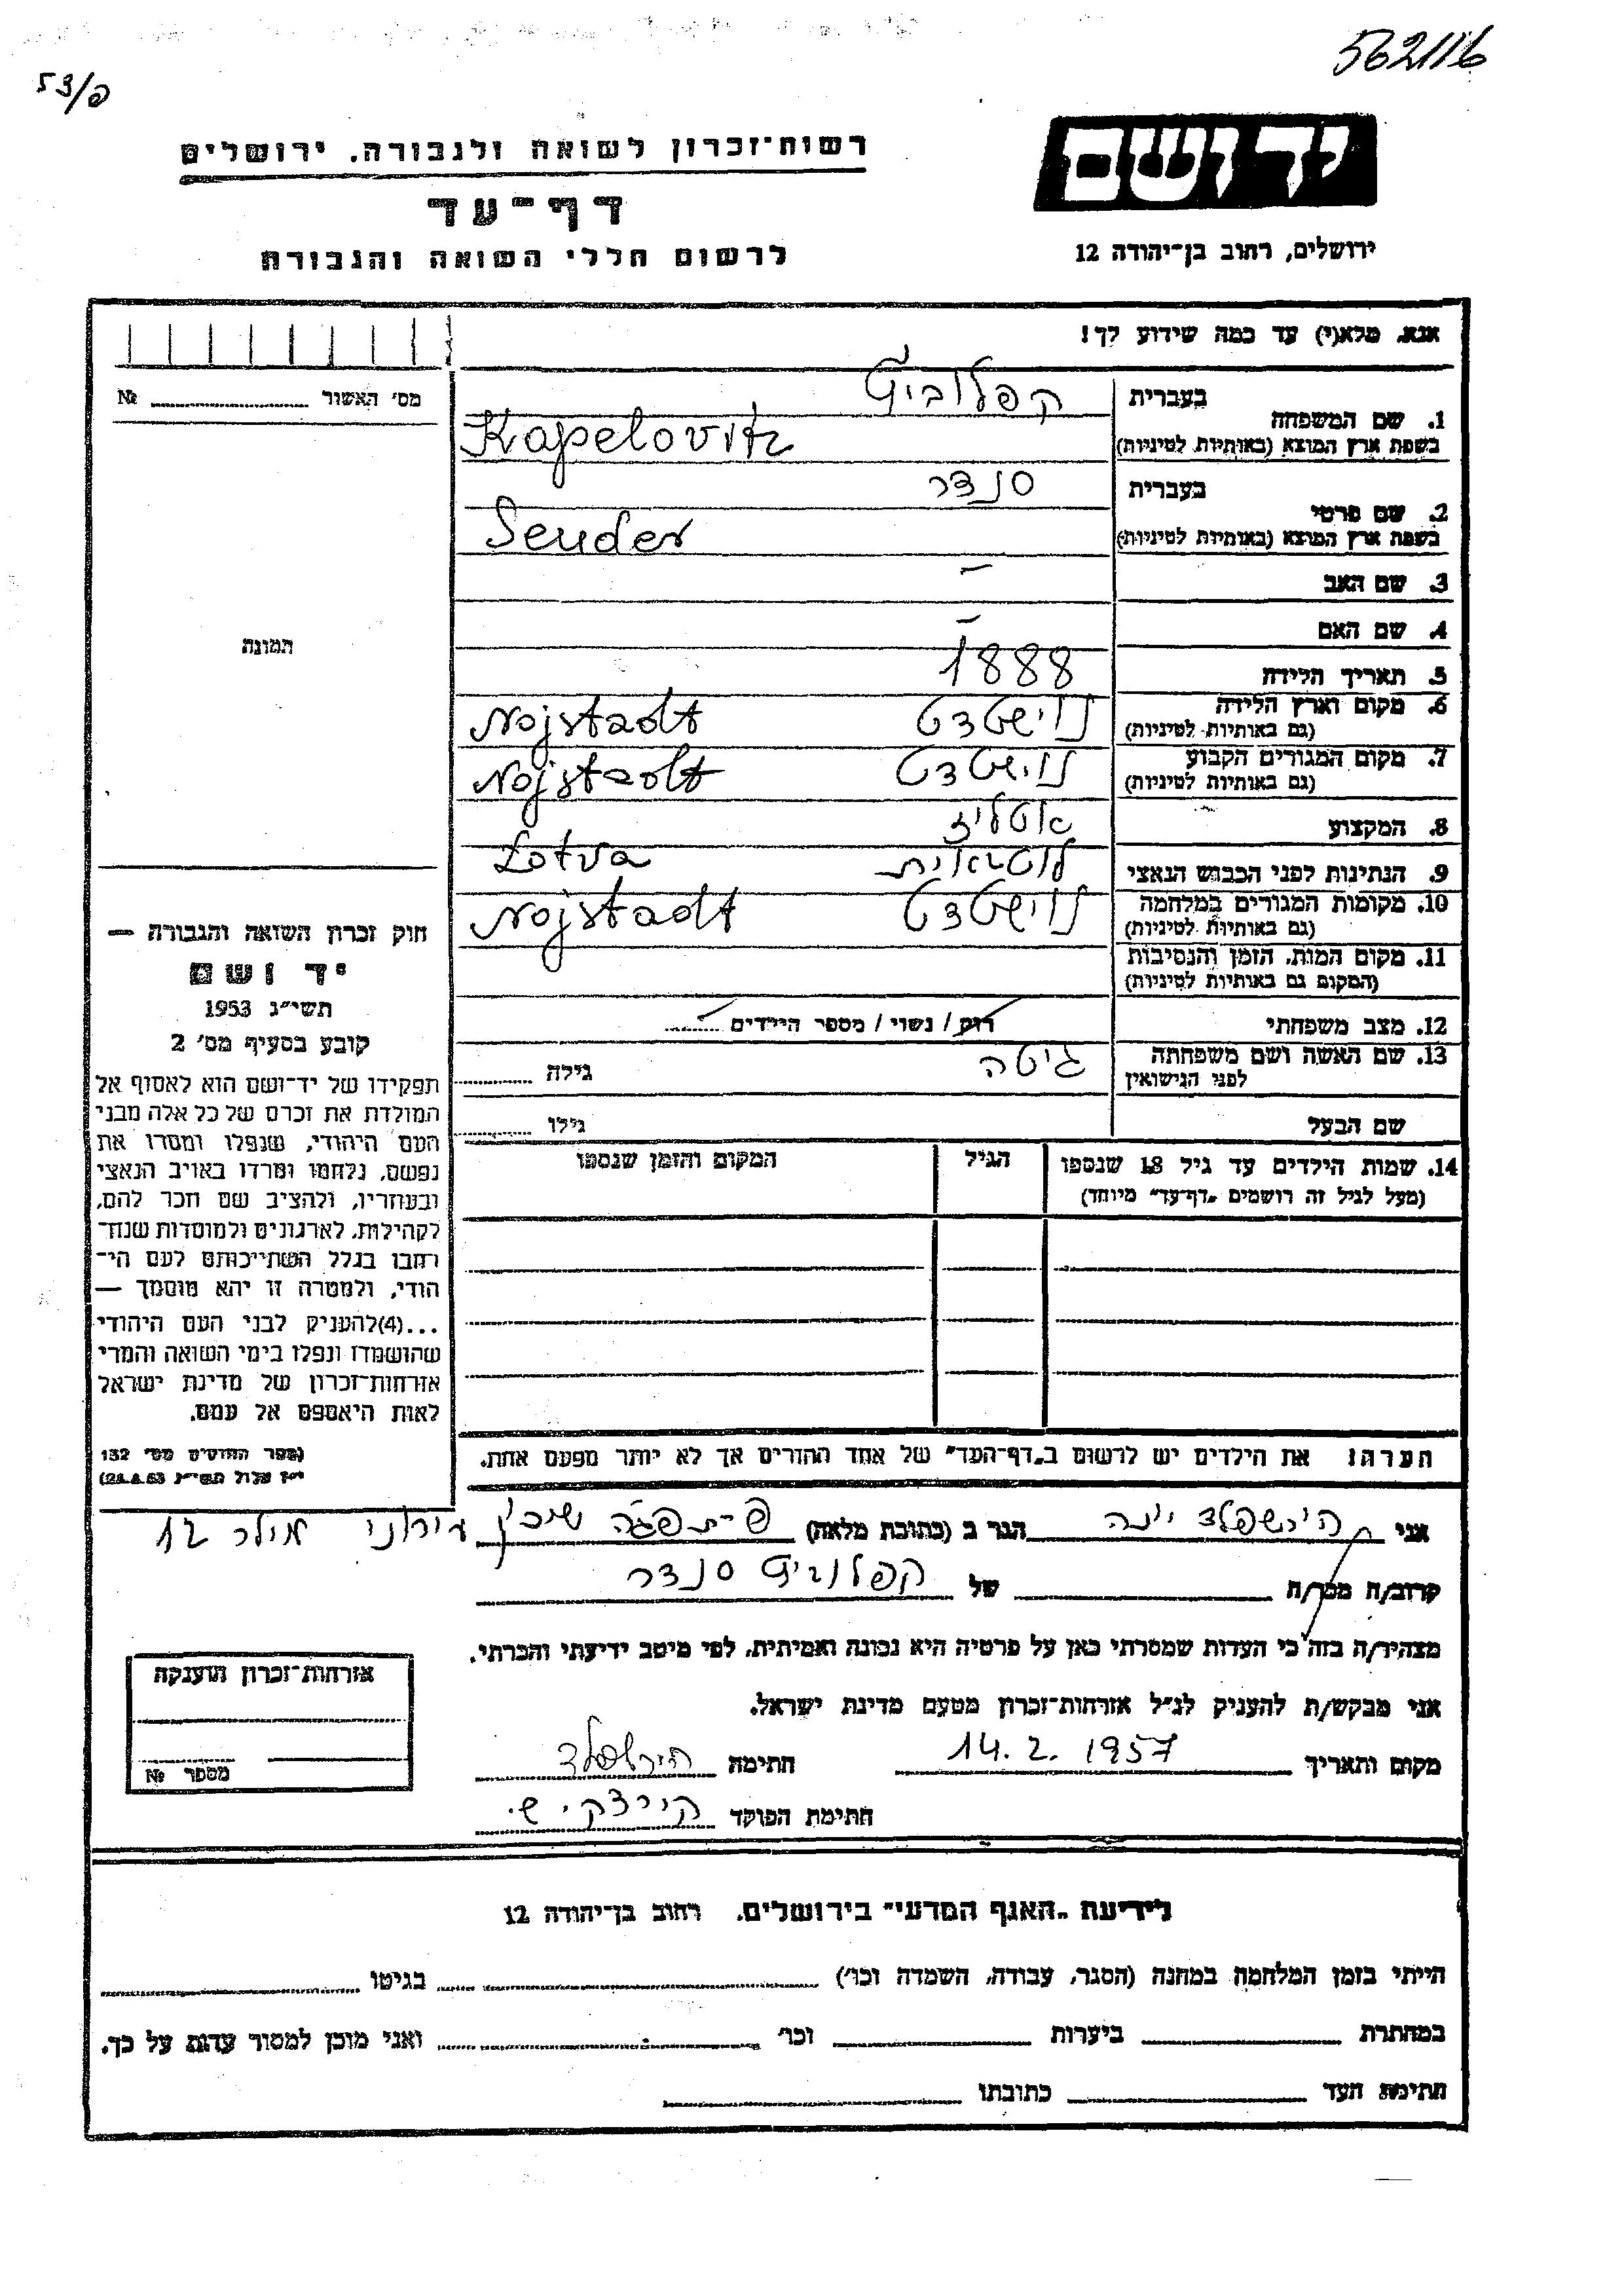 562116
53/פ
יד ושם
ירושלים, רחוב בן־יהודה 12
רשות־זכרון לשואה ולגבורה. ירושלים
דף־עד
לרשום חללי השואה והגבורה
אנא, מלא(י) עד כמה שידוע לך!
מס׳ האשור № 
1. שם המשפחה
בעברית קפלוביץ
בשפת ארץ המוצא (באותיות לטיניות) Kapelovitz
2. שם פרטי
בעברית סנדר
בשפת ארץ המוצא (באותיות לטיניות) Sender
3. שם האב –
4. שם האם –
5. תאריך הלידה 1888
6. מקום וארץ הלידה נוישטדט Nojstadt
(גם באותיות לטיניות)
7. מקום המגורים הקבוע נוישטדט Nojstadt
(גם באותיות לטיניות)
8. המקצוע אטליז
9. הנתינות לפני הכבוש הנאצי Lotva
10. מקומות המגורים במלחמה נוישטדט Nojstadt
(גם באותיות לטיניות)
11. מקום המות, הזמן והנסיבות
(המקום גם באותיות לטיניות)
12. מצב משפחתי רווק / נשוי / מספר הילדים
13. שם האשה ושם משפחתה גיטה גילה
לפני הנישואין
שם הבעל גילו
14. שמות הילדים עד גיל 18 שנספו הגיל המקום והזמן שנספו
(מעל לגיל זה רושמים „דף־עד״ מיוחד)
הערה: את הילדים יש לרשום ב„דף־העד״ של אחד ההורים אך לא יותר מפעם אחת.
תמונה
חוק זכרון השואה והגבורה —
יד ושם
תשי״ג 1953
קובע בסעיף מס׳ 2
תפקידו של יד־ושם הוא לאסוף אל
המולדת את זכרם של כל אלה מבני
העם היהודי, שנפלו ומסרו את
נפשם, נלחמו ומרדו באויב הנאצי
ובעוזריו, ולהציב שם וזכר להם,
לקהילות, לארגונים ולמוסדות שנח־
רבו בגלל השתייכותם לעם הי־
הודי, ולמטרה זו יהא מוסמך —
...(4)להעניק לבני העם היהודי
שהושמדו ונפלו בימי השואה והמרי
אזרחות־זכרון של מדינת ישראל
לאות היאספם אל עמם.
(ספר החוקים מס׳ 132
י״ז אלול תשי״ג 28.8.53)
אני הירשפלד יונה הגר ב (כתובת מלאה) שיכון עירוני 12
קרוב/ה מכר/ה של קפלוביץ סנדר
מצהיר/ה בזה כי העדות שמסרתי כאן על פרטיה היא נכונה ואמיתית, לפי מיטב ידיעתי והכרתי.
אני מבקש/ת להעניק לנ״ל אזרחות־זכרון מטעם מדינת ישראל.
מקום ותאריך 14.2.1957 חתימה הירשפלד
חתימת הפוקד
אזרחות־זכרון הוענקה
מספר №
לידיעת „האגף המדעי״ בירושלים. רחוב בן־יהודה 12
הייתי בזמן המלחמה במחנה (הסגר, עבודה, השמדה וכו׳) בגיטו
במחתרת ביערות וכו׳ ואני מוכן למסור עדות על כך.
חתימת העד כתובתו